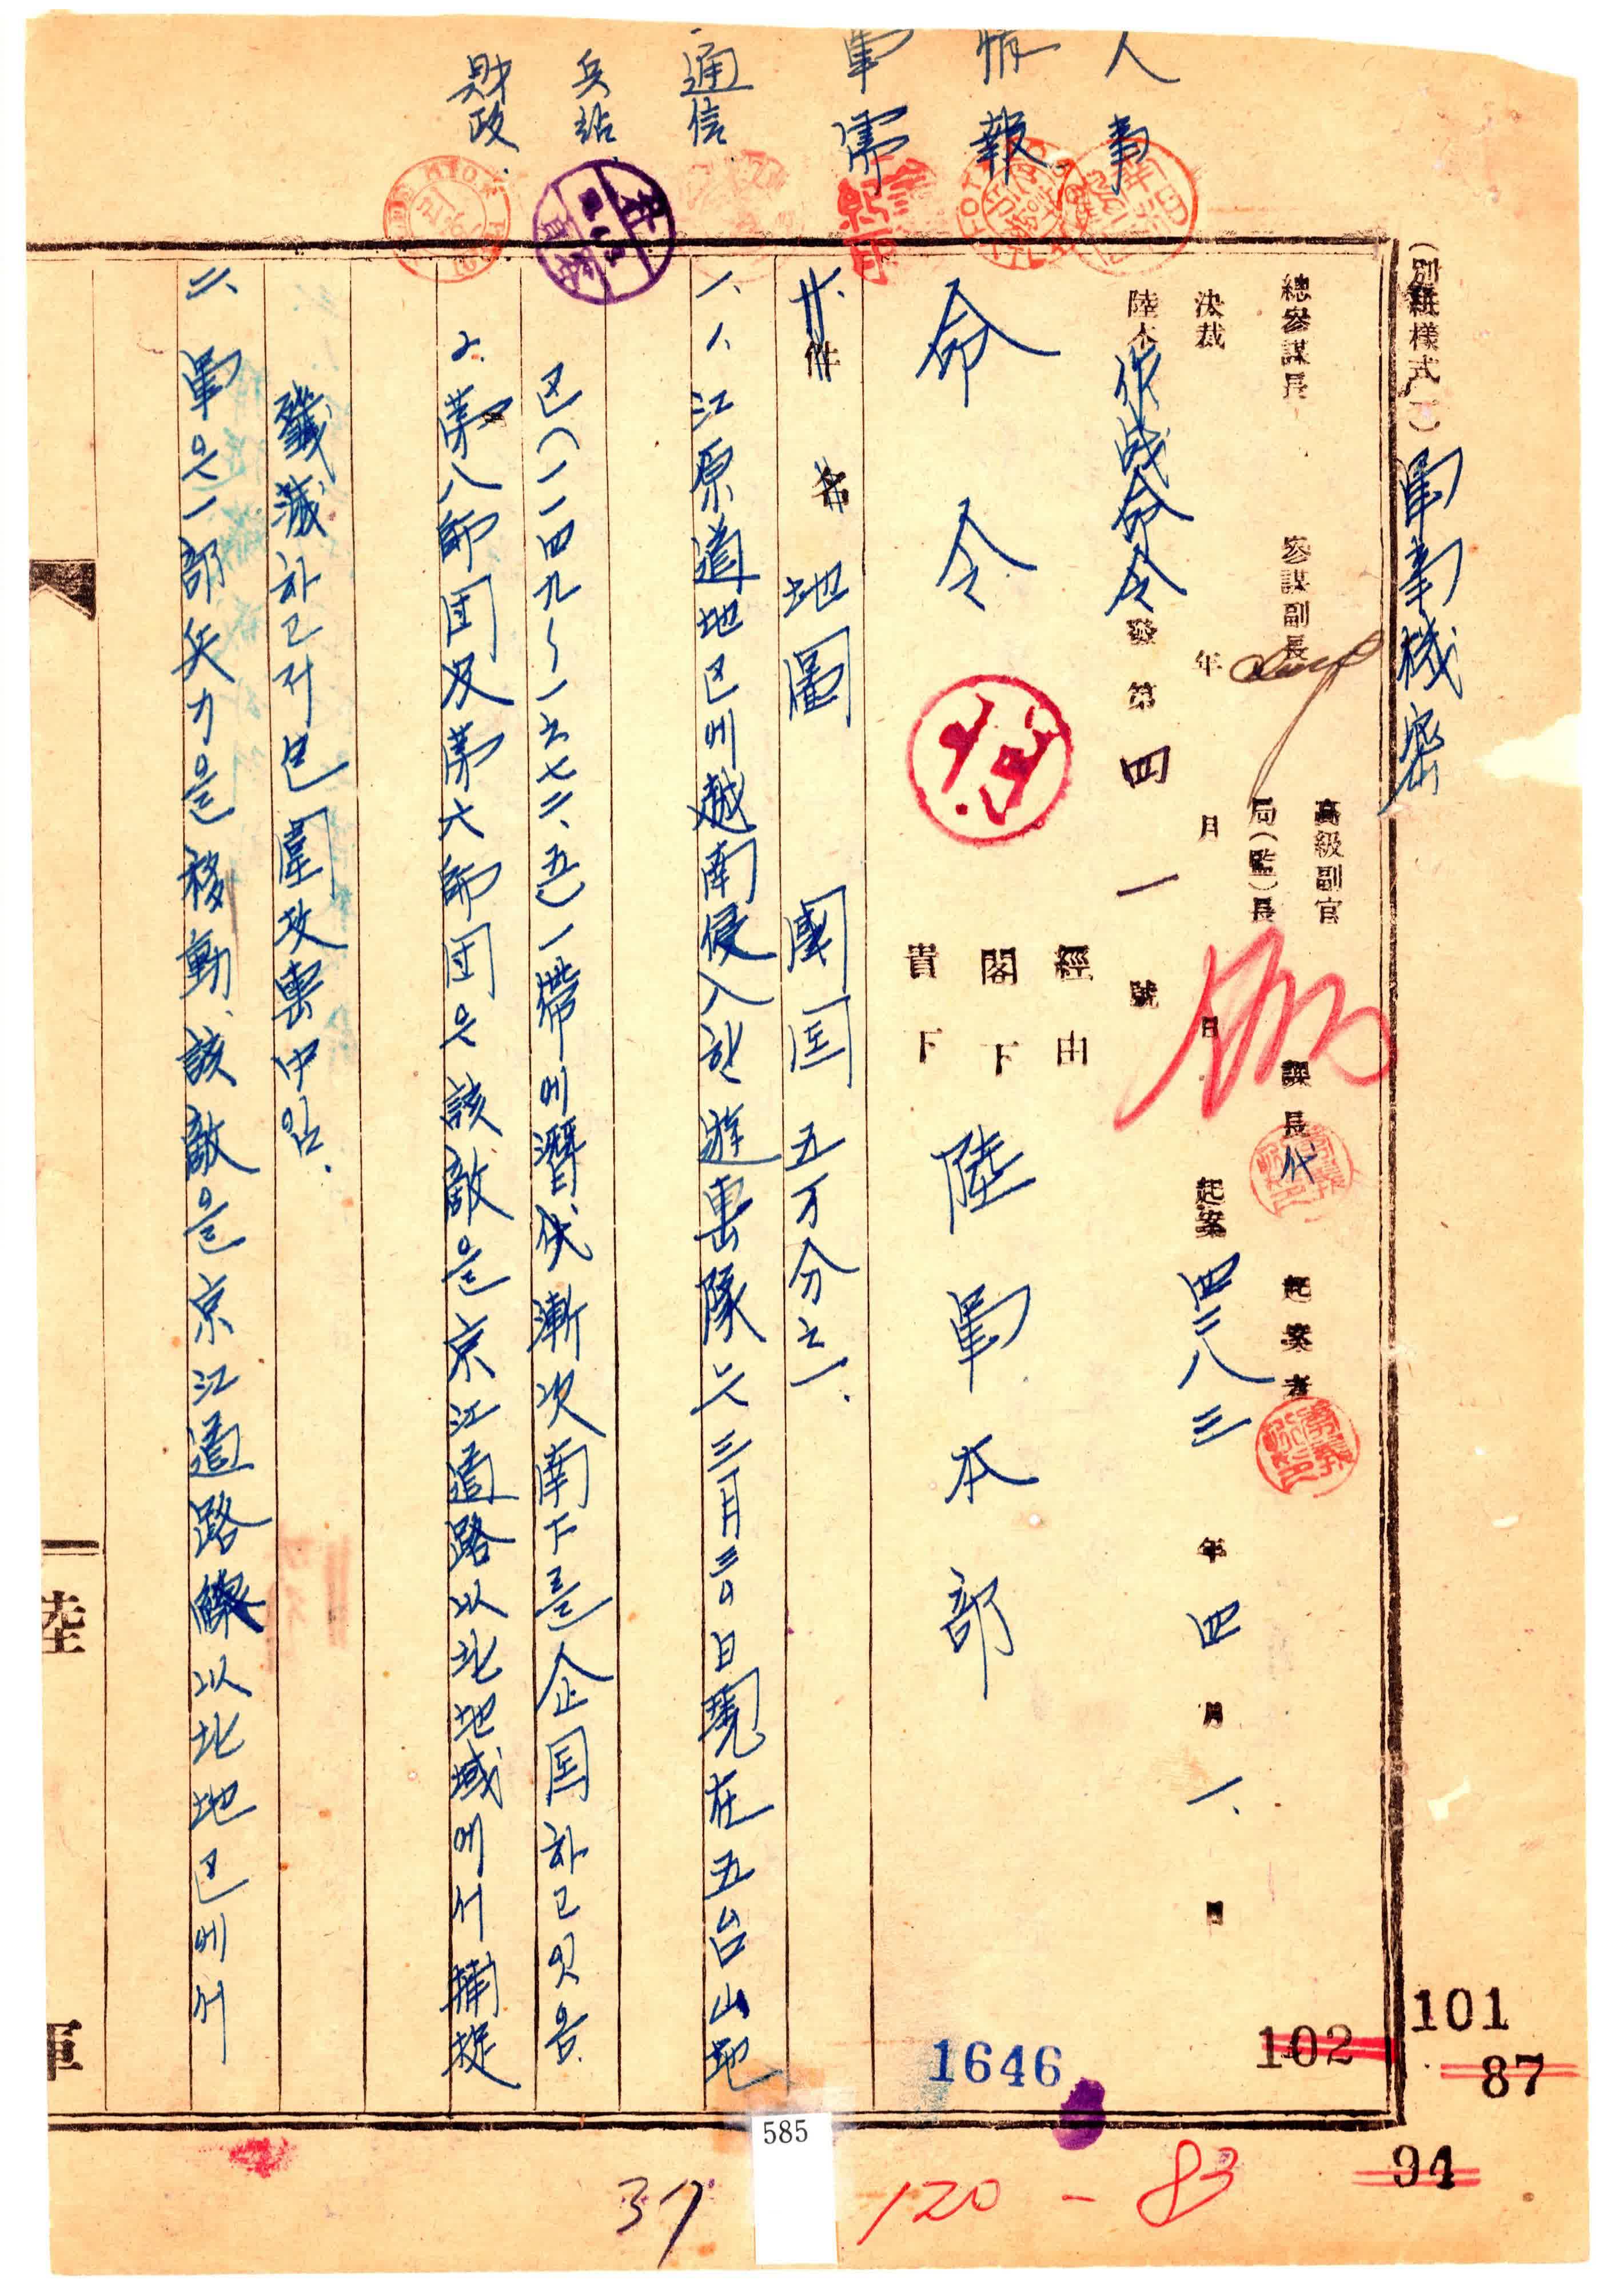 (別紙樣式一) 軍事機密
高級副官
總參謀長 參謀副長 局(監)長 課長代 起案者
決裁 年 月 日 起案 四二八三年 四月 一日
陸本作戰命令發第四一號
經由
閣下
貴下
命令 陸軍本部
人事
情報
軍需
通信
兵站
財政
件名 地圖 韓国 五万分之一.
一、 1、江原道地区에越南侵入한遊擊隊는三月三〇日現在五台山地
区(一一四九~一六七二、五)一帶에潛伏漸次南下를企図하고잇음.
2、第八師団及第六師団은該敵을京江道路以北地域에서捕捉
殲滅하고저包圍攻擊中임.
二、 軍은一部兵力을移動、該敵을京江道路線以北地区에서
陸
軍
1646
102
101
87
94
585
37
120-83